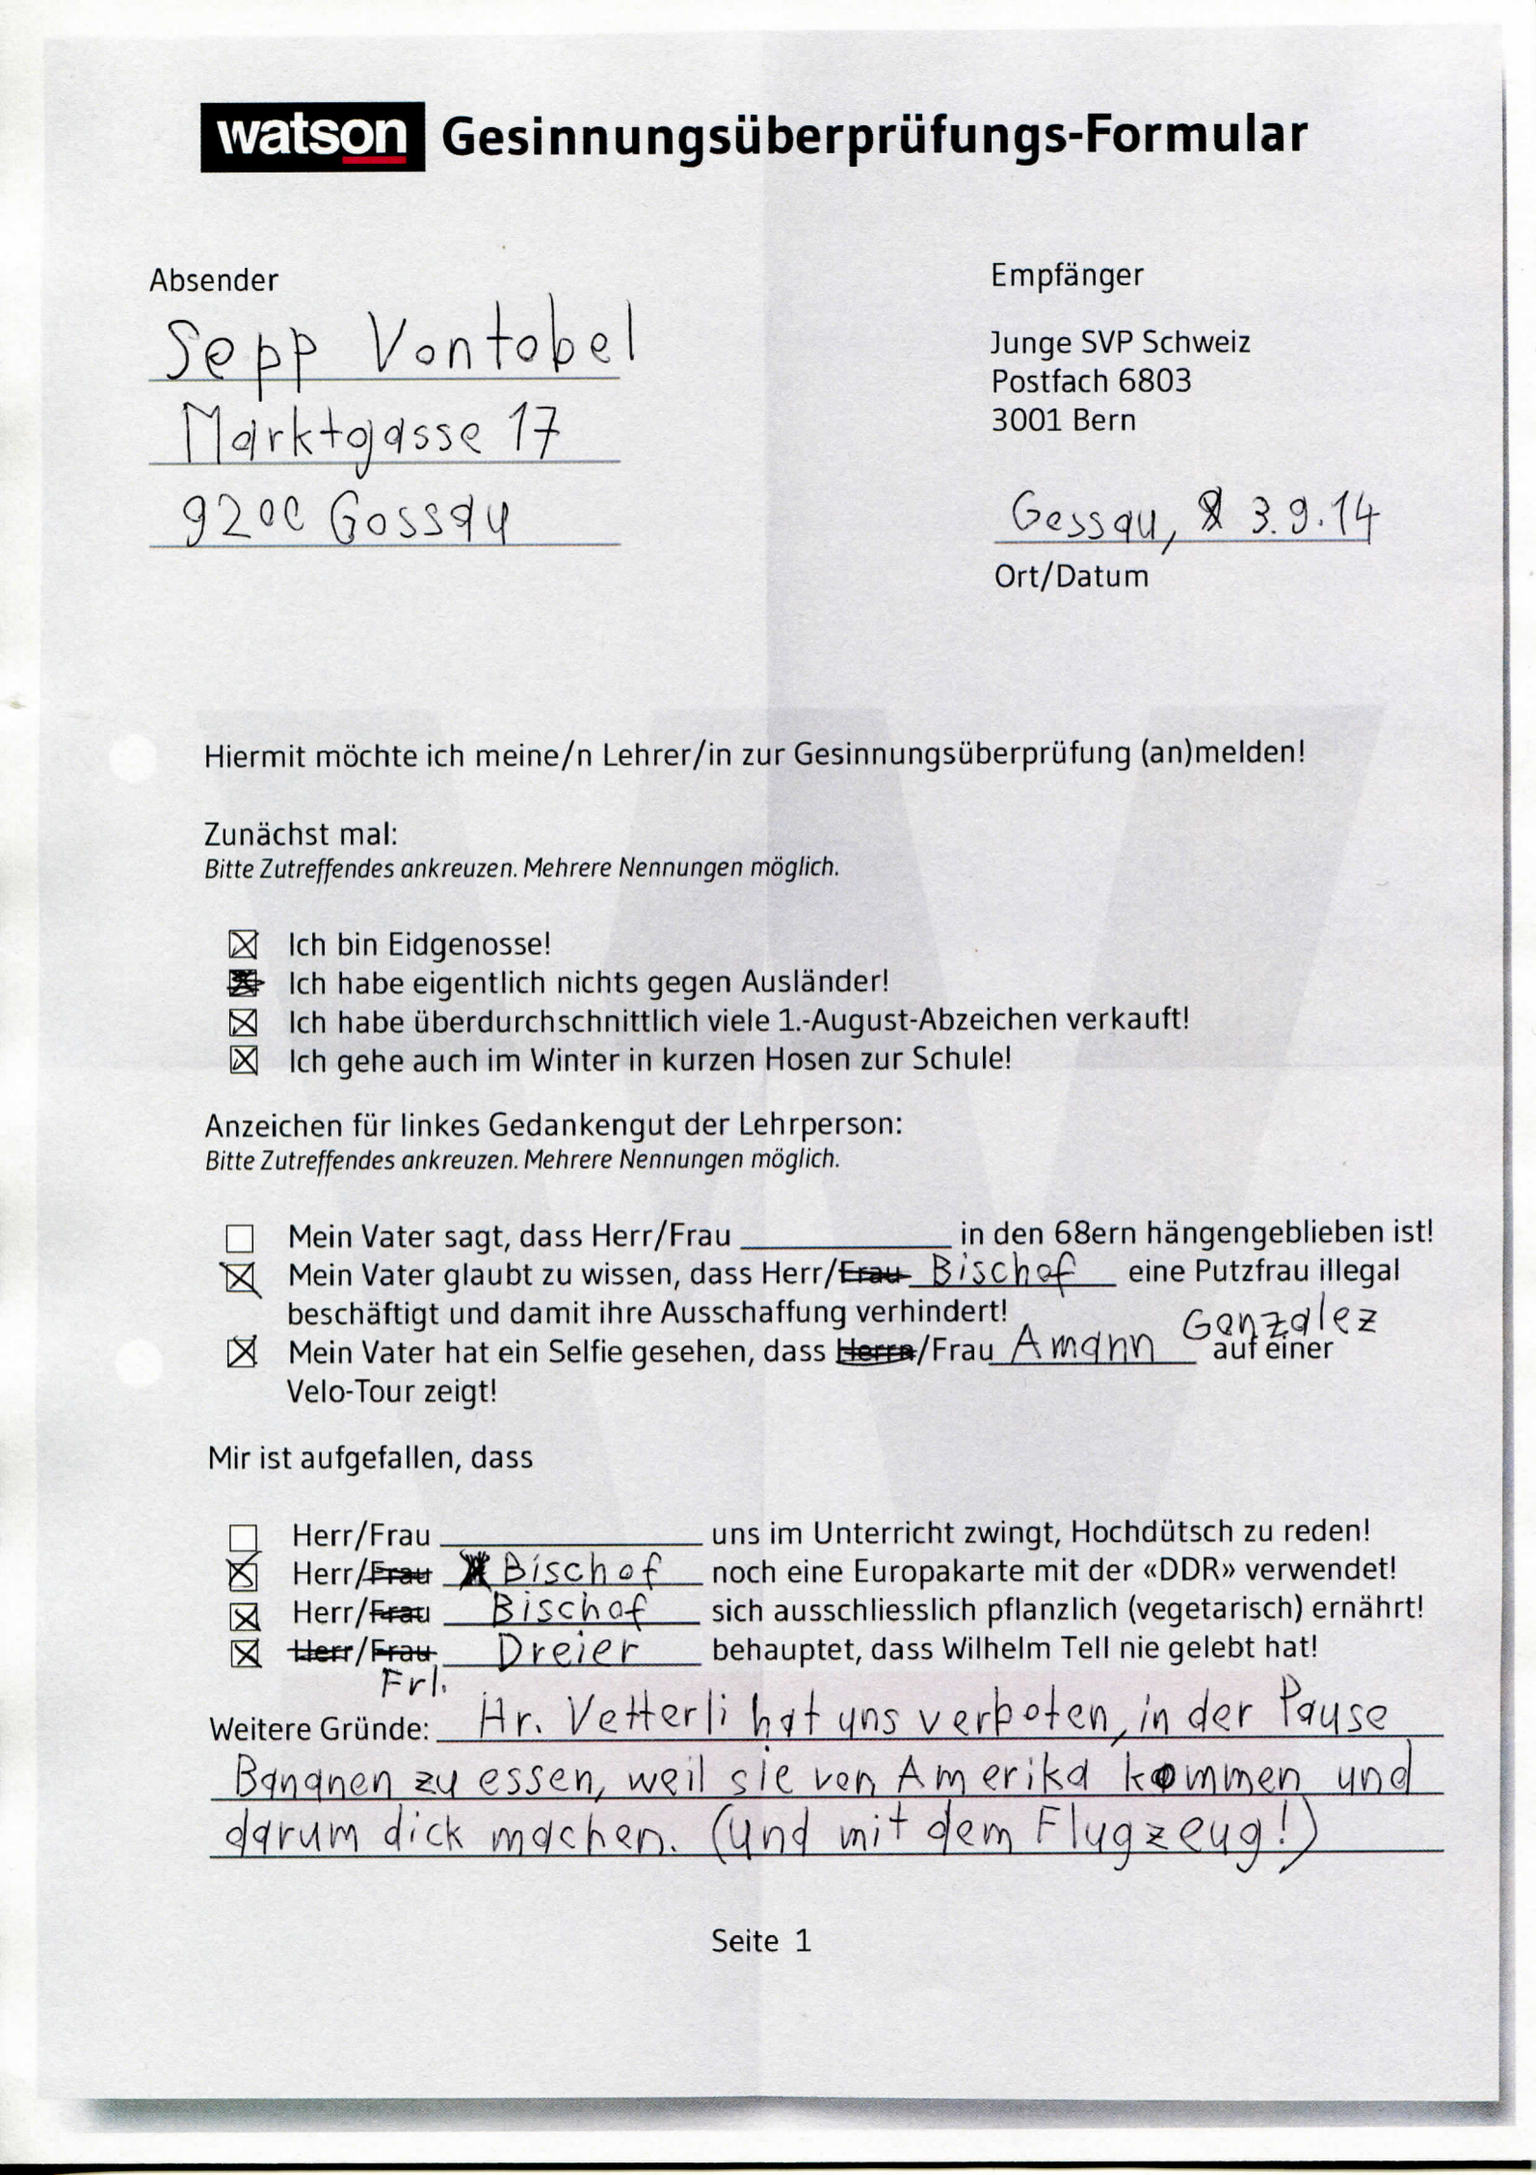 watson Gesinnungsüberprüfungs-Formular
Absender
Sepp Vontobel
Marktgasse 17
9200 Gossau
Empfänger
Junge SVP Schweiz
Postfach 6803
3001 Bern
Gossau, 3.9.14
Ort/Datum
Hiermit möchte ich meine/n Lehrer/in zur Gesinnungsüberprüfung (an)melden!
Zunächst mal:
Bitte Zutreffendes ankreuzen. Mehrere Nennungen möglich.
Ich bin Eidgenosse!
Ich habe eigentlich nichts gegen Ausländer!
Ich habe überdurchschnittlich viele 1.-August-Abzeichen verkauft!
Ich gehe auch im Winter in kurzen Hosen zur Schule!
Anzeichen für linkes Gedankengut der Lehrperson:
Bitte Zutreffendes ankreuzen. Mehrere Nennungen möglich.
Mein Vater sagt, dass Herr/Frau in den 68ern hängengeblieben ist!
Mein Vater glaubt zu wissen, dass Herr/Frau Bischof eine Putzfrau illegal
beschäftigt und damit ihre Ausschaffung verhindert!
Mein Vater hat ein Selfie gesehen, dass Herrn/Frau Amann Gonzalez auf einer
Velo-Tour zeigt!
Mir ist aufgefallen, dass
Herr/Frau uns im Unterricht zwingt, Hochdütsch zu reden!
Herr/Frau Bischof noch eine Europakarte mit der «DDR» verwendet!
Herr/Frau Bischof sich ausschliesslich pflanzlich (vegetarisch) ernährt!
Herr/Frau Dreier behauptet, dass Wilhelm Tell nie gelebt hat!
Frl.
Weitere Gründe: Hr. Vetterli hat uns verboten, in der Pause
Bananen zu essen, weil sie von Amerika kommen und
darum dick machen. (und mit dem Flugzeug!)
Seite 1